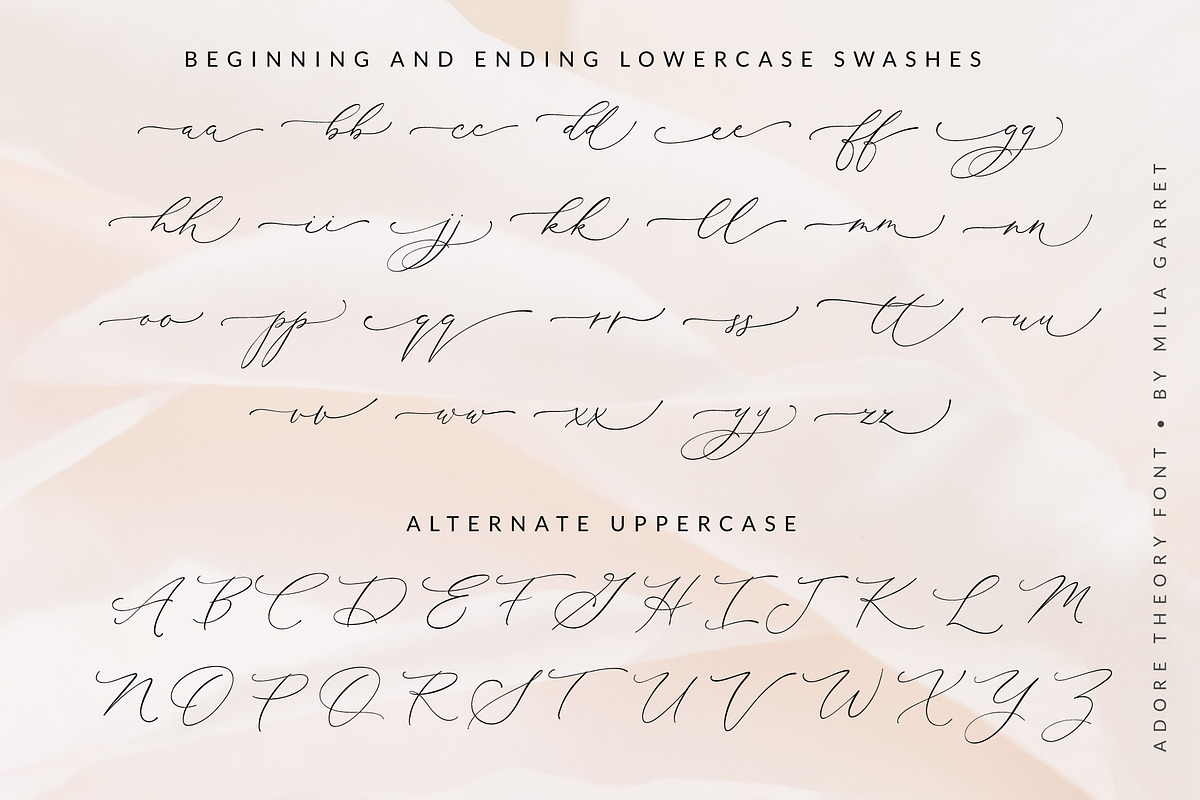 BEGINNING AND ENDING LOWERCASE SWASHES
aa bb cc dd ee ff gg
hh ii jj kk ll mm nn
oo pp qq rr ss tt uu
vv ww xx yy zz
ALTERNATE UPPERCASE
A B C D E F G H I J K L M
N O P Q R S T U V W X Y Z
ADORE THEORY FONT • BY MILA GARRET